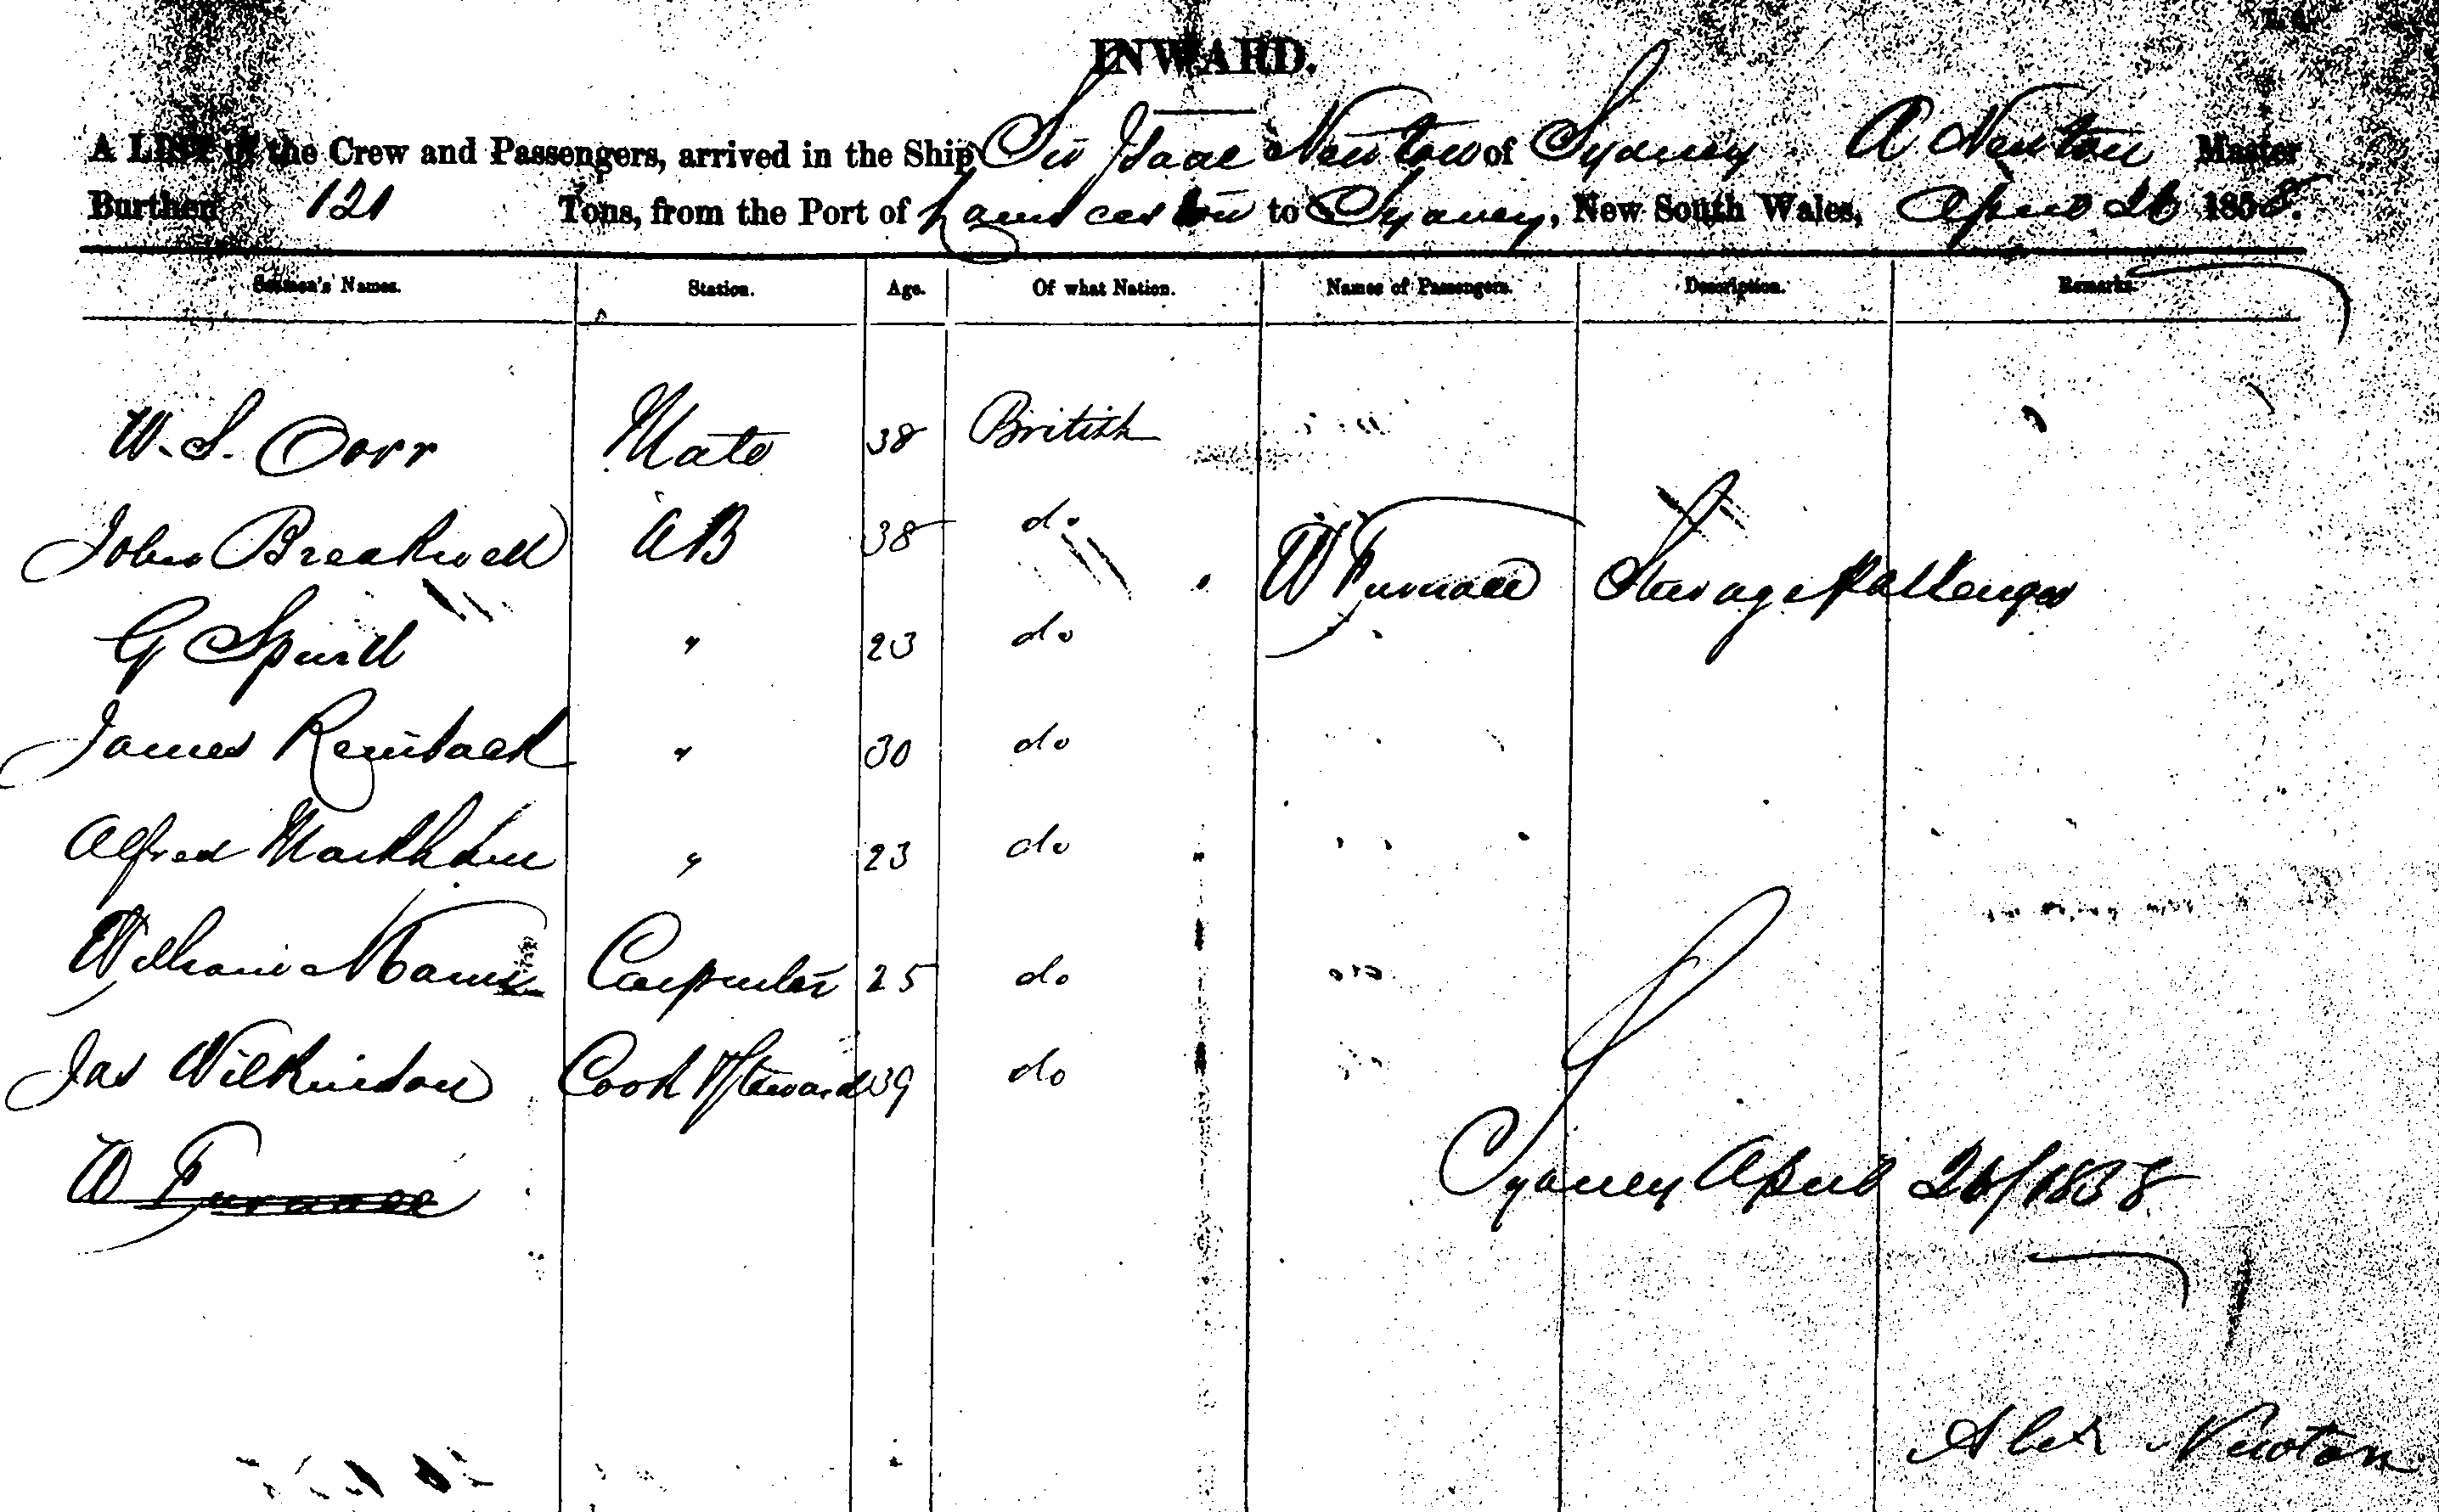 INWARD.
A LIST of the Crew and Passengers, arrived in the Ship Sir Isaac Newton of Sydney A Newton Master
Burthen 121 Tons, from the Port of Launceston to Sydney, New South Wales, April 26 1858.
Seamen's Names. Station. Age. Of what Nation. Names of Passengers. Description. Remarks.
W. S. Orr Mate 38 British
John Breakwell AB 38 do
W Furnace Steerage Passenger
G " 23 do
James " 30 do
Alfred Markham " 23 do
William Carpenter 25 do
Jas Wilkinson Cook & Steward 39 do
W Furnace
Sydney April 26/1858
Alex Newton